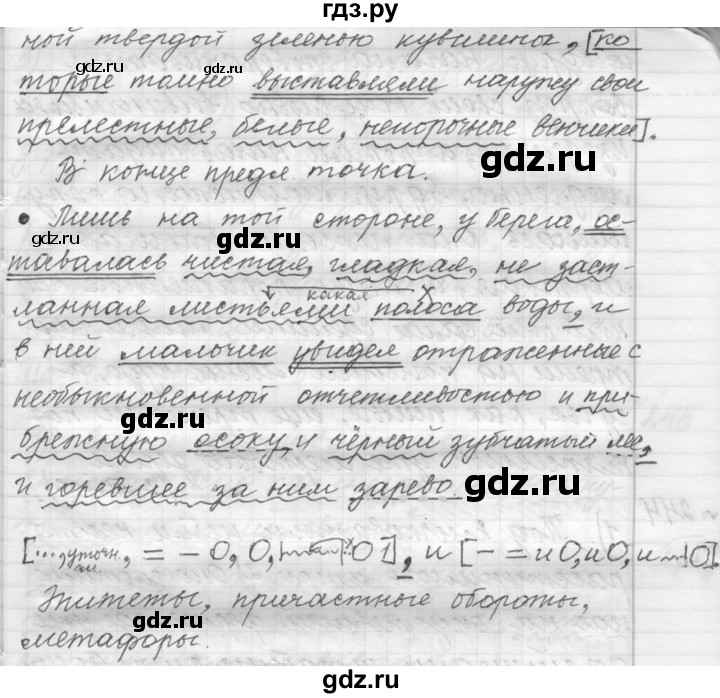 гдз.ру
ной твердой зеленою кувшины, [ко
торые томно выставляли наружу свои
прелестные, белые, непорочные венчики].
gdz.ru
gdz.ru
В конце предл. точка.
• Лишь на той стороне, у берега, ос-
gdz.ru
gdz.ru
тавалась чистая, гладкая, не заст-
какая
ланная листьями полоса воды, и
в ней мальчик увидел отраженные с
необыкновенной отчетливостью и при-
gdz.ru
брежную осоку, и чёрный зубчатый лес,
и горевшее за ним зарево.
[..., уточн., = – О, О, О], и [– = и О, и О, и О].
gdz.ru
Эпитеты, причастные обороты,
метафоры.
gdz.ru
gdz.ru